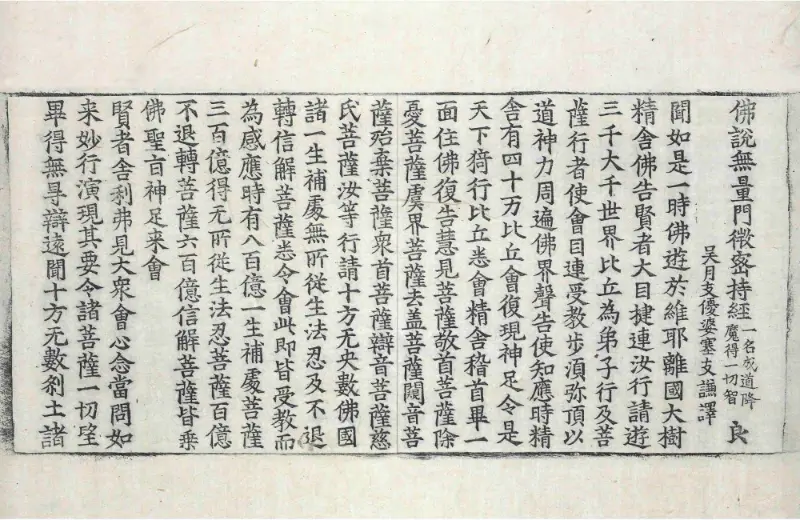 佛說無量門微密持經 一名成道降魔得一切智 良
吳月支優婆塞支謙譯
聞如是一時佛遊於維耶離國大樹
精舍佛告賢者大目揵連汝行請遊
三千大千世界比丘為弟子行及菩
薩行者使會目連受教步湏弥頂以
道神力周遍佛界聲告使知應時精
舎有四十万比丘會復現神足令是
天下猗行比丘悉會精舍稽首畢一
面住佛復告慧見菩薩敬首菩薩除
憂菩薩虞界菩薩去盖菩薩闚音菩
薩殆棄菩薩衆首菩薩辯音菩薩慈
氏菩薩汝等行請十方无央數佛國
諸一生補處無所從生法忍及不退
轉信解菩薩悉令會此即皆受教而
為感應時有八百億一生補處菩薩
三百億得无所從生法忍菩薩百億
不退轉菩薩六百億信解菩薩皆乘
佛聖旨神足来會
賢者舎利弗見大衆會心念當問如
来妙行演現其要令諸菩薩一切望
畢得無㝵辯遠聞十方无數剎土諸